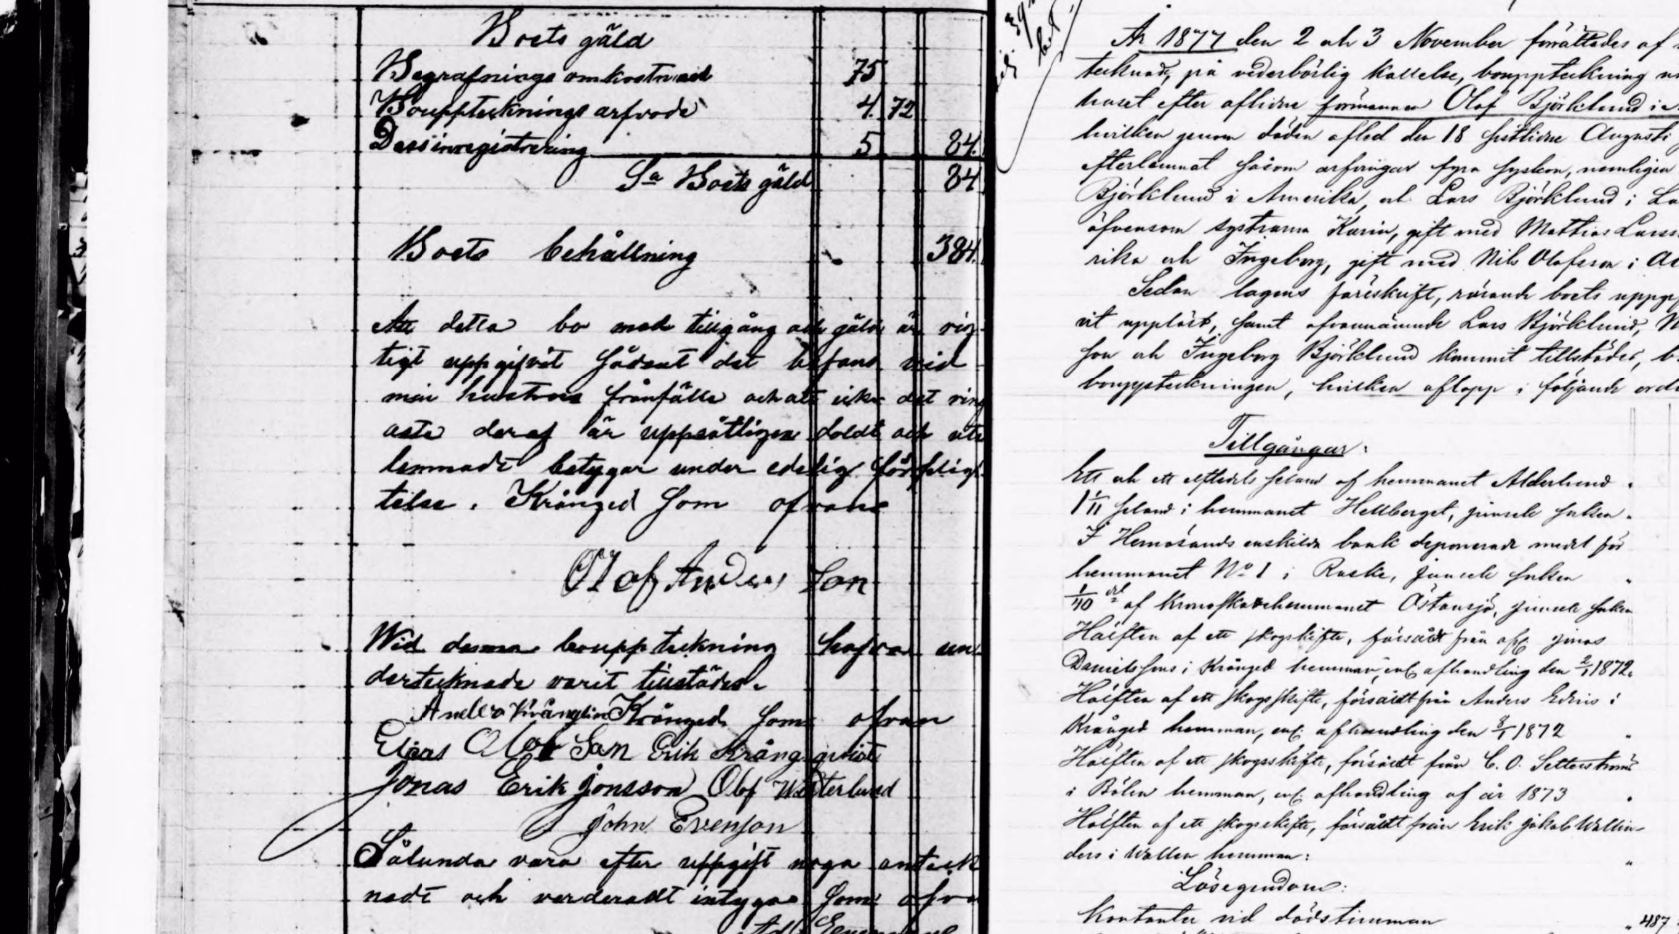 Boets gäld
Begrafnings omkostnad 75
Bouppteknings arfvode 4. 72
Dess inregistrering 5 84.
Sa Boets gäld 84
Boets behållning 384.
Att detta bo med tillgång och gäld är rig-
tigt uppgifvit sådant det befans vid
min hustrus frånfälle och att icke det ring
aste deraf är uppsåtligen doldt och ute
lemnadt betygar under edelig förplig-
telse. Krånged som ofvan
Olof Anders son
Wid denna bouppteckning hafva un-
dertecknade varit tillstädes.
Krånged som ofvan
Elias Olof Son Erik Krångqvist
Jonas Erik Jonsson Olof Westerlund
John Evenson
Sålunda vara efter uppgift noga anteck
nadt och värderadt intyga som ofva
År 1877 den 2 och 3 November förättades af
tecknad, på vederbörlig kallelse, bouppteckning
huset efter aflidne förmannen Olof Björklund i
hvilken genom döden afled den 18 sistlidne Augusti
efterlemnat såsom arfvingar fyra syskon, nemligen
Björklund i Amerika, och Lars Björklund i
äfvensom systrarna Karin, gift med Mattias Larss
rika och Ingeborg, gift med Nils Olofsson i
Sedan lagens föreskrift, rörande boets uppgi
vit uppläst, samt ofvannämnde Lars Björklund,
son och Ingeborg Björklund kommit tillstädes,
bouppteckningen, hvilken aflopp i följande ord
Tillgångar:
Ett och ett elftedels seland af hemmanet Alderlund
1 1/11 seland i hemmanet Hellberget, jemte
I Hernösands enskilda bank deponerade medel för
hemmanet No 1 i Ruske,
1/40 del af Kronoskattehemmanet Östansjö,
Hälften af ett skogsskifte, försåldt från Jonas
Danielssons i Krånged hemman, enl. afhandling den 1872.
Hälften af ett skogsskifte, försåldt från Anders Edins i
Krånged hemman, enl. afhandling den 1872
Hälften af ett skogsskifte, försåldt från C. O. Setterström
i Bölen hemman, enl. afhandling af år 1873
Hälften af ett skogsskifte, försåldt från Erik Jakob Wallin-
ders i Wallen hemman:
Lösegendom:
Kontanter vid dödstimman 487